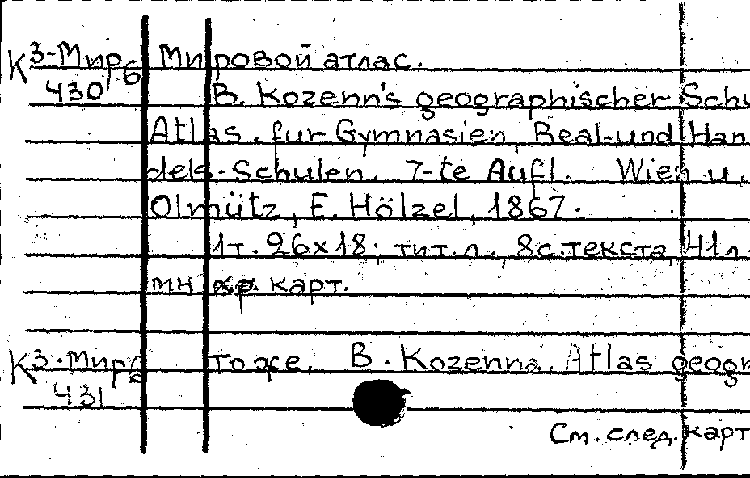 К 3-Мир 6 Мировой атлас.
430 B. Kozenn's geographischer Schu
Atlas. fur Gymnasien, Real-und Han
dels-Schulen. 7-te Aufl. Wien u.
Olmütz, E. Hölzel, 1867.
1т. 26x18; тит.л., 8с.текста, 41л.
мн кр. карт.
К 3-Мир 6 То же, B. Kozenna. Atlas geogr
431
См. след. карт